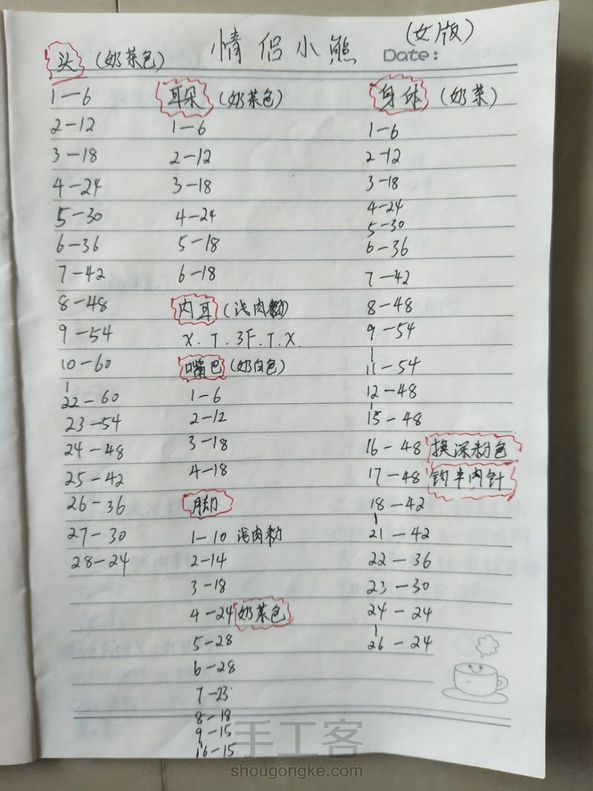 情侣小熊
(女版)
Date:
头 (奶茶色)
1-6
2-12
3-18
4-24
5-30
6-36
7-42
8-48
9-54
10-60
22-60
23-54
24-48
25-42
26-36
27-30
28-24
耳朵 (奶茶色)
1-6
2-12
3-18
4-24
5-18
6-18
内耳 (浅肉粉)
X.T.3F.T.X.
嘴巴 (奶白色)
1-6
2-12
3-18
4-18
脚
1-10 浅肉粉
2-14
3-18
4-24 奶茶色
5-28
6-28
7-23
8-18
9-15
16-15
身体 (奶茶)
1-6
2-12
3-18
4-24
5-30
6-36
7-42
8-48
9-54
11-54
12-48
15-48
16-48 换深粉色
17-48 钩半内针
18-42
21-42
22-36
23-30
24-24
26-24
手工客
shougongke.com